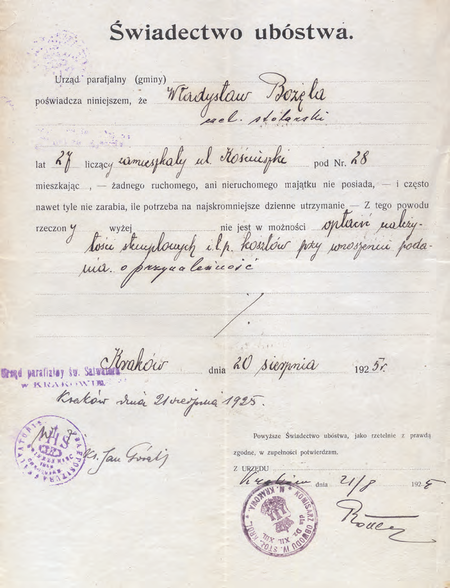 Świadectwo ubóstwa.
Urząd parafjalny (gminy)
poświadcza niniejszem, że Władysław Bożęta
czel. stolarski
lat 27 liczący zamieszkały ul. Kościuszki pod Nr. 28
mieszkając , — żadnego ruchomego, ani nieruchomego majątku nie posiada, — i często
nawet tyle nie zarabia, ile potrzeba na najskromniejsze dzienne utrzymanie. — Z tego powodu
rzeczony wyżej nie jest w możności opłacić należy-
tości stemplowych i t.p. kosztów przy wnoszeniu poda-
nia o przynależność
Kraków dnia 20 sierpnia 1925 r.
Urząd parafialny św. Salwatora
w KRAKOWIE
Kraków dnia 21 sierpnia 1925.
Ks. Jan
Powyższe Świadectwo ubóstwa, jako rzetelnie z prawdą
zgodne, w zupełności potwierdzam.
Z URZĘDU
Kraków dnia 21/8 1925
KOMISARZ OBWODU IV. STOŁ. KRÓL. M. KRAKOWA